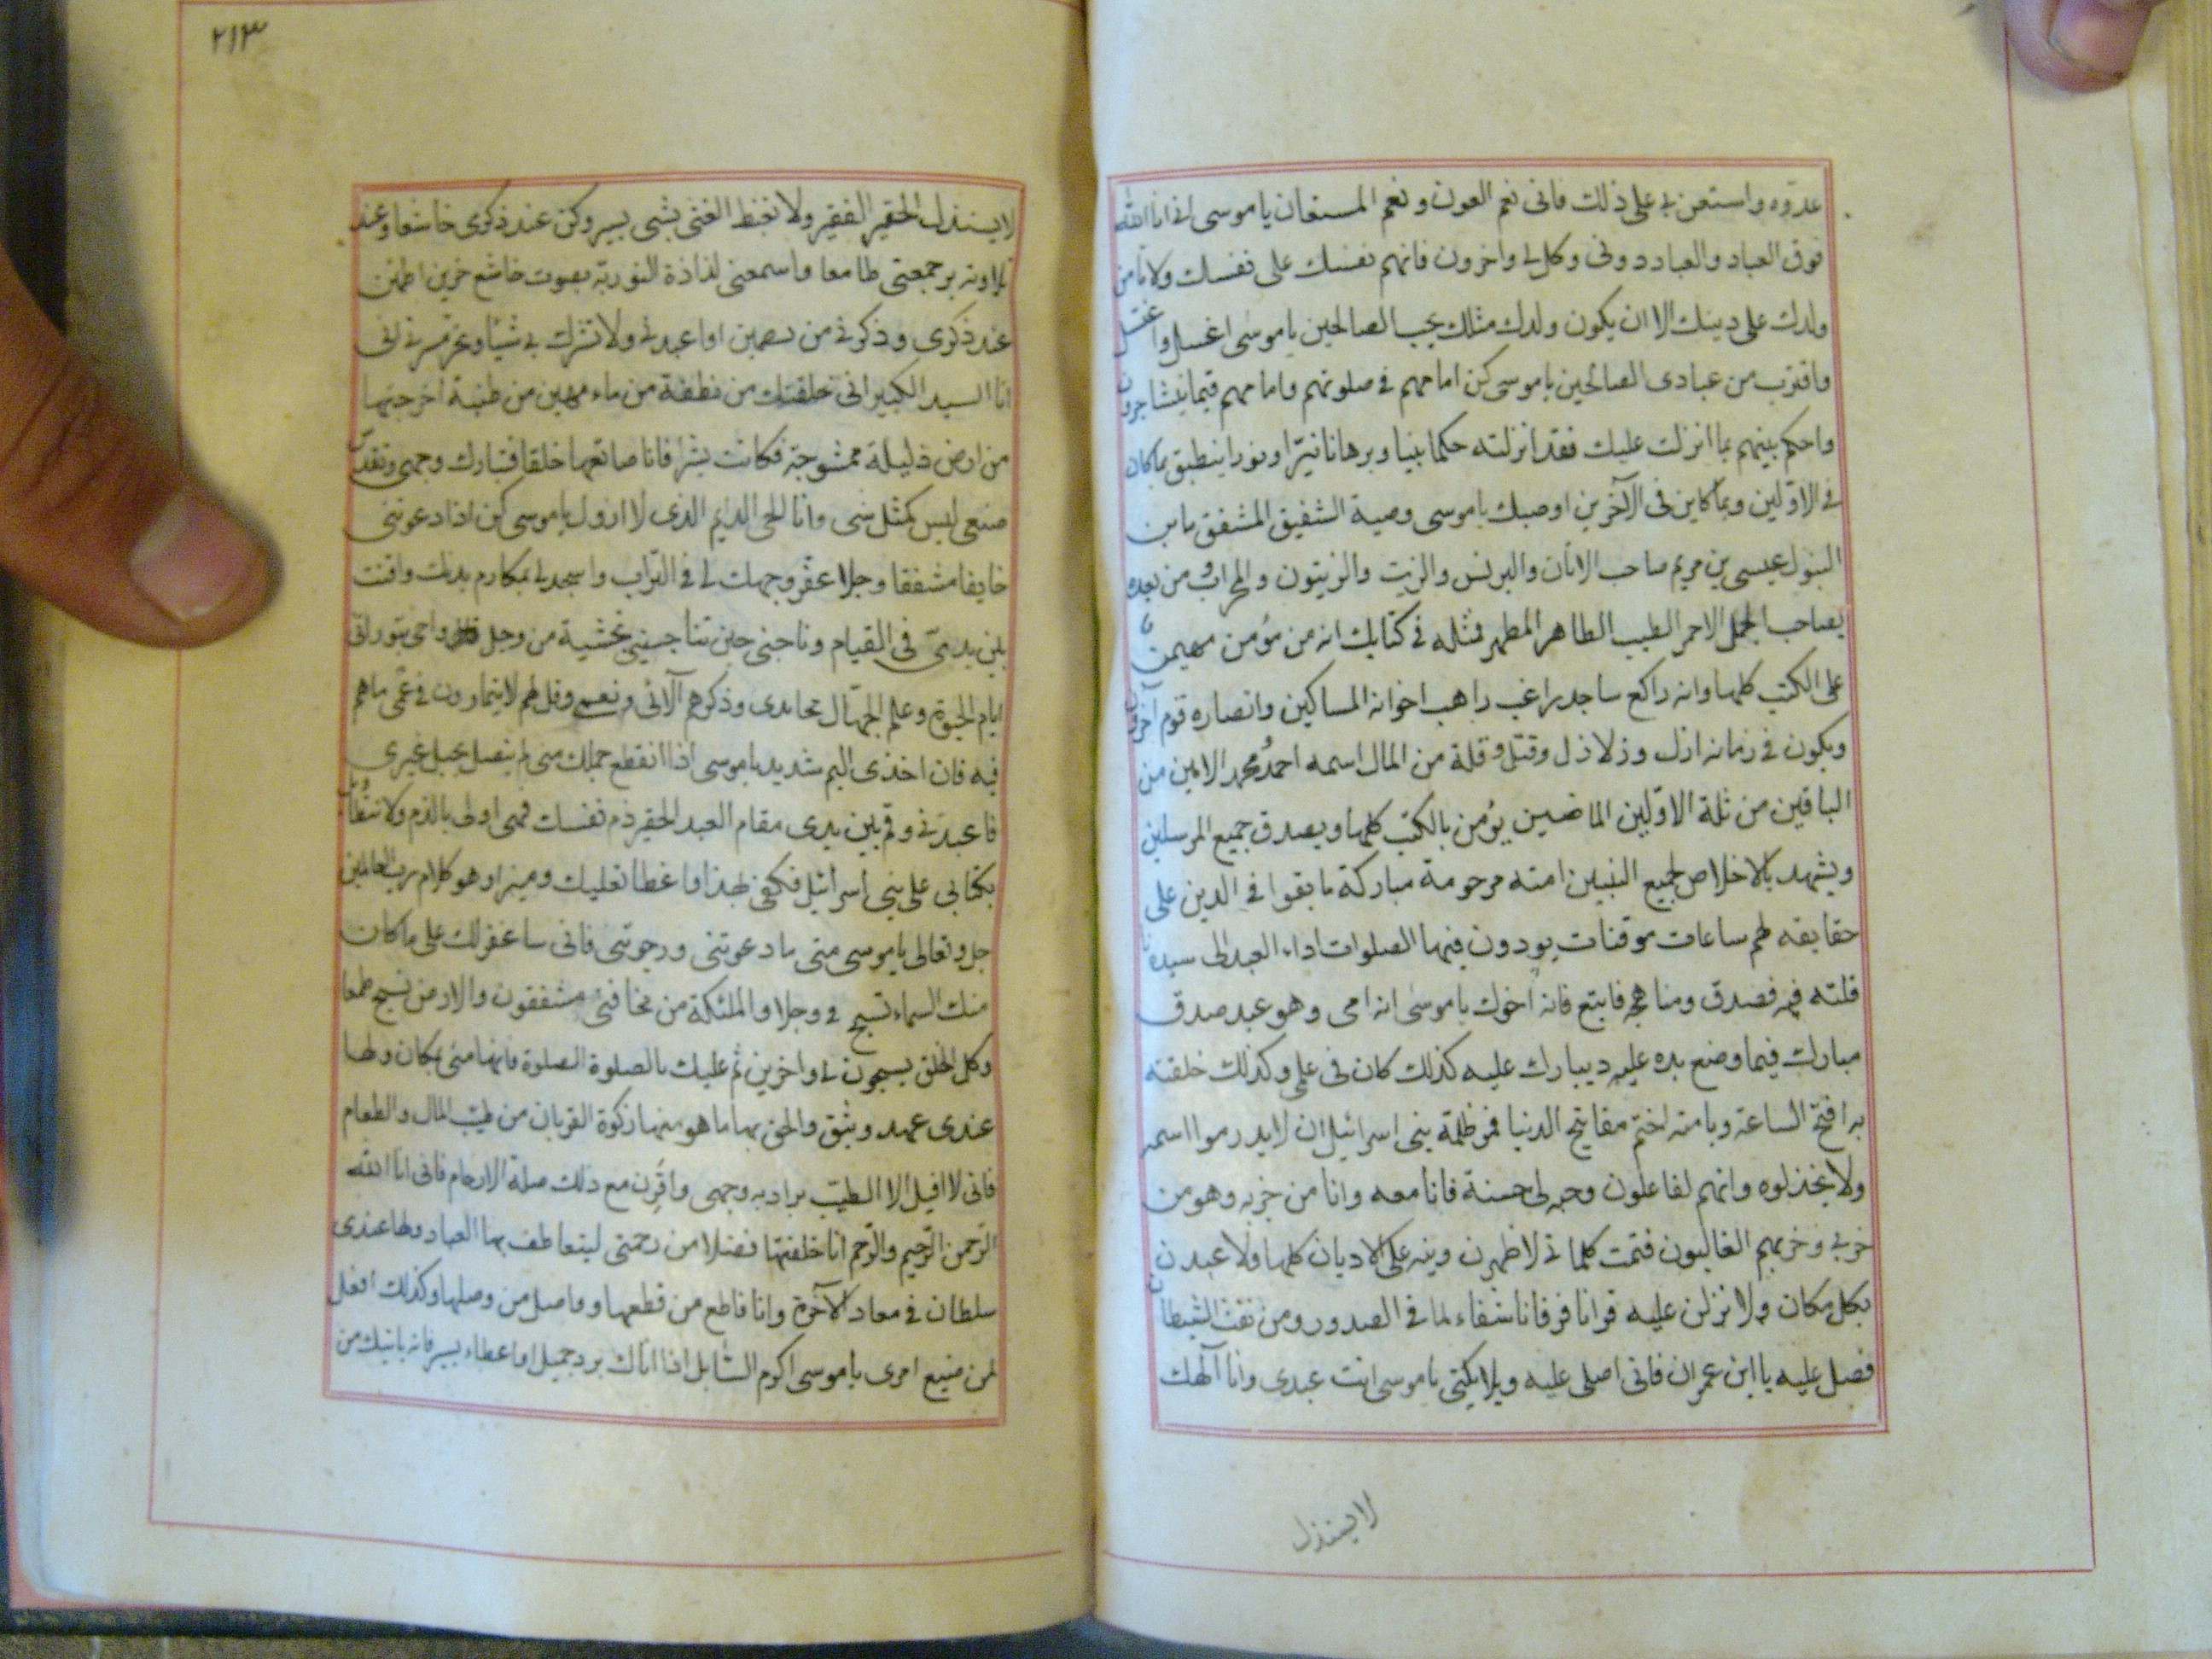 عدوه واستعن بي على ذلك فانى نعم العون ونعم المستعان ياموسى انى انا الله
فوق العباد والعباد دونى وكل لى داخرون فاتهم نفسك على نفسك ولا تأمن
ولدك على دينك الا ان يكون ولدك مثلك يحب الصالحين ياموسى اغسل واغتسل
واقترب من عبادى الصالحين ياموسى كن امامهم في صلوتهم وامامهم فيما يتشاجرون
واحكم بينهم بما انزلت عليك فقد انزلته حكما بينا وبرهانا نيرا ونورا ينطق بما كان
في الاولين وبما كاين فى الآخرين اوصيك ياموسى وصية الشفيق المشفق بابن
البتول عيسى بن مريم صاحب الاتان والبرنس والزيت والزيتون والمحراب ومن بعده
بصاحب الجمل الاحمر الطيب الطاهر المطهر فمثله في كتابك انه من مؤمن مهيمن
على الكتب كلها وانه راكع ساجد راغب راهب اخوانه المساكين وانصاره قوم آخرون
ويكون في زمانه ازل وزلازل وقتل وقلة من المال اسمه احمد ومحمد الامين من
الباقين من ثلة الاولين الماضين يؤمن بالكتب كلها ويصدق جميع المرسلين
ويشهد بالاخلاص لجميع النبيين امته مرحومة مباركة ما بقوا في الدين على
حقايقه لهم ساعات موقتات يودون فيها الصلوات اداء العبد الى سيده نا
فلته فبه فصدق ومناهجه فاتبع فانه اخوك ياموسى انه امى وهو عبد صدق
مبارك فيما وضع يده عليه ديبارك عليه كذلك كان فى علمى وكذلك خلقته
به افتح الساعة وبامته اختم مفاتيح الدنيا فمر ظلمة بنى اسرائيل ان لا يدرموا اسمه
ولا يخذلوه وانهم لفاعلون وحبه لى حسنة فانا معه وانا من حزبه وهو من
حزبى وحزبهم الغالبون فتمت كلماتى لاظهرن دينه على الاديان كلها ولا عبدن
بكل مكان ولانزلن عليه قرانا فرقانا شفاء لما فى الصدور ومن نفث الشيطان
فصل عليه ياابن عمران فانى اصلى عليه وملائكتى ياموسى انت عبدى وانا الهك
لا يستذل
٢١٣
لا يستذل الحقير الفقير ولا تغبط الغنى بشى يسير وكن عند ذكرى خاشعا وعند
تلاوته برحمتى طامعا واسمعنى لذاذة التورية بصوت خاشع حزين اطمئن
عند ذكرى وذكر بى من يطمئن او اعبدنى ولا تشرك بى شيئا وتحر مسرتى انى
انا السيد الكبير انى خلقتك من نطفة من ماء مهين من طينة اخرجتها
من ارض ذليلة ممشوجة فكانت بشرا فانا صانعها خلقا فتبارك وجهى وتقدس
صنعى ليس كمثلى شى وانا الحى الدايم الذى لا ازول ياموسى كن اذا دعوتنى
خايفا مشفقا وجلا عفر وجهك لى فى التراب واسجد لى بمكارم بدنك واقنت
بين يدى فى القيام وناجنى حين تناجينى بخشية من وجل واحى بتوراتى
ايام الحيوة وعلم الجهال محامدى وذكرهم آلائى ونعمى وقل لهم لا يتمادون في غى ماهم
فيه فان اخذى اليم شديد ياموسى اذا انقطع حبلك منى لم يتصل بحبل غيرى
فاعبدنى وقم بين يدى مقام العبد الحقير ذم نفسك فهى اولى بالذم ولا تتطاول
بكتابى على بنى اسرائيل فكفى بهذا واعظا لقلبك ومنيرا وهو كلام رب العالمين
جل وتعالى ياموسى متى ما دعوتنى ورجوتنى فانى ساغفر لك على ما كان
منك السماء تسبح لى وجلا والملئكة من مخافتى مشفقون والارض تسبح طمعا
وكل الخلق يسبحون لى داخرين ثم عليك بالصلوة الصلوة فانها منى بمكان ولها
عندى عهد وثيق والحق بها ما هو منها زكوة القربان من طيب المال والطعام
فانى لا اقبل الا الطيب يراد به وجهى واقرن مع ذلك صلة الارحام فانى انا الله
الرحمن الرحيم والرحم انا خلقتها فضلا من رحمتى ليتعاطف بها العباد ولها عندى
سلطان في معاد الآخرة وانا قاطع من قطعها وواصل من وصلها وكذلك افعل
لمن ضيع امرى ياموسى اكرم السائل اذا اتاك برد جميل او اعطاء يسير فانه ياتيك من